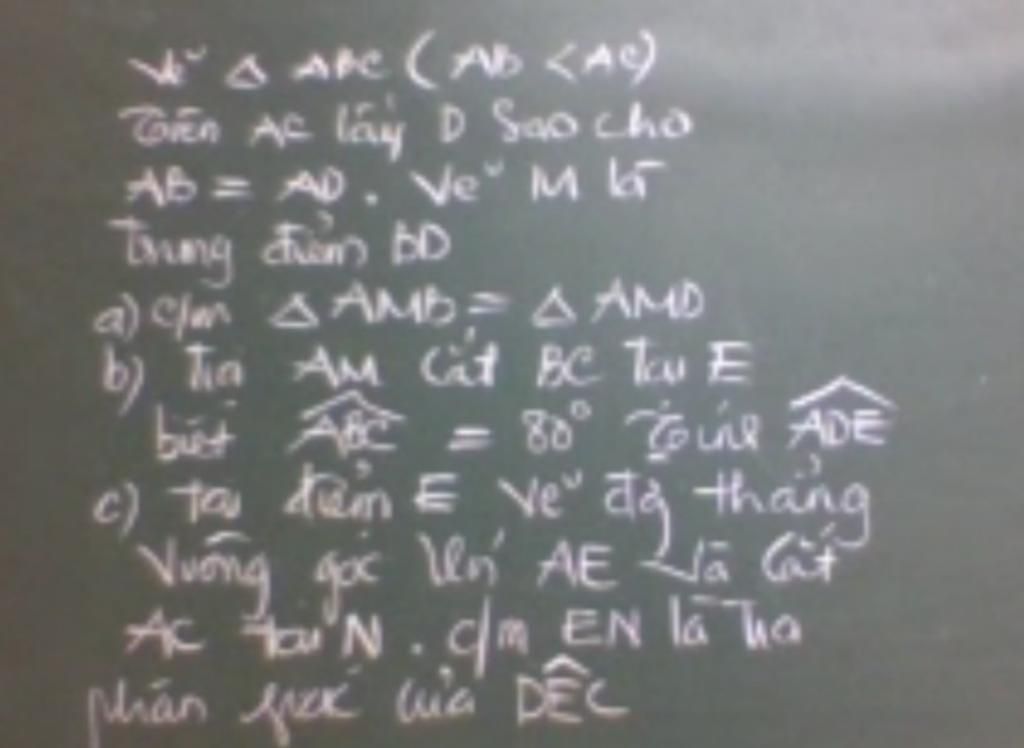 Vẽ Δ ABC (AB < AC)
Trên AC lấy D sao cho
AB = AD. Vẽ M là
trung điểm BD
a) c/m Δ AMB = Δ AMD
b) Tia AM cắt BC tại E
biết ABC = 80° Tính ADE
c) tại điểm E vẽ đg thẳng
vuông góc với AE và cắt
AC tại N. c/m EN là tia
phân giác của DEC